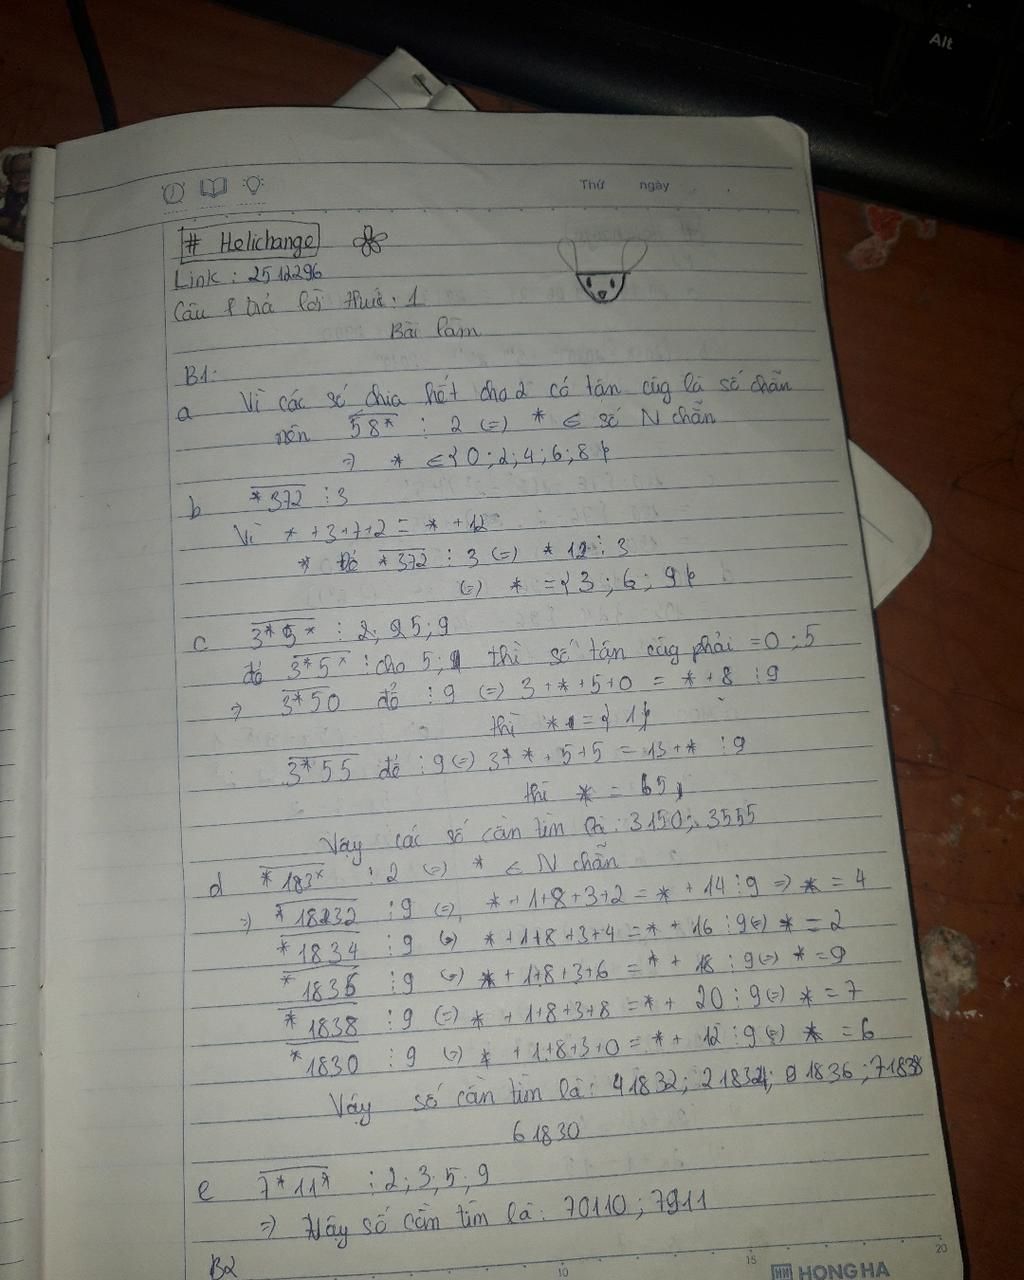 Alt
Thứ ngày
# Helichange
Link : 2512296
Câu trả lời thứ : 1
Bài làm
B1:
a Vì các số chia hết cho 2 có tận cùg là số chẵn
nên 58* ⋮ 2 (=) * ∈ số N chẵn
=> * ∈ { 0 ; 2 ; 4 ; 6 ; 8 }
b *372 ⋮ 3
Vì * + 3+7+2 = * + 12
* Để *372 ⋮ 3 (=) * 12 ⋮ 3
(=) * = { 3 ; 6 ; 9 }
c 3*5* ⋮ 2; 5 ; 9
để 3*5* ⋮ cho 5; thì số tận cùg phải = 0 ; 5
=> 3*50 để ⋮ 9 (=) 3 + * + 5 + 0 = * + 8 ⋮ 9
thì * = { 1 }
3*55 để ⋮ 9 (=) 3 + * + 5+5 = 13 + * ⋮ 9
thì * = 5
Vậy các số cần tìm là : 3150 ; 3555
d *183* ⋮ 2 (=) * ∈ N chẵn
=> *1832 ⋮ 9 (=) * + 1+8+3+2 = * + 14 ⋮ 9 => * = 4
*1834 ⋮ 9 (=) * + 1+8+3+4 = * + 16 ⋮ 9 (=) * = 2
*1836 ⋮ 9 (=) * + 1+8+3+6 = * + 18 ⋮ 9 (=) * = 9
*1838 ⋮ 9 (=) * + 1+8+3+8 = * + 20 ⋮ 9 (=) * = 7
*1830 ⋮ 9 (=) * + 1+8+3+0 = * + 12 ⋮ 9 (=) * = 6
Vậy số cần tìm là : 41832 ; 21834 ; 91836 ; 71838
61830
e 7*11* ⋮ 2 ; 3 ; 5 ; 9
=> Vậy số cần tìm là : 70110 ; 7911
B2
10 15 20
HONG HA